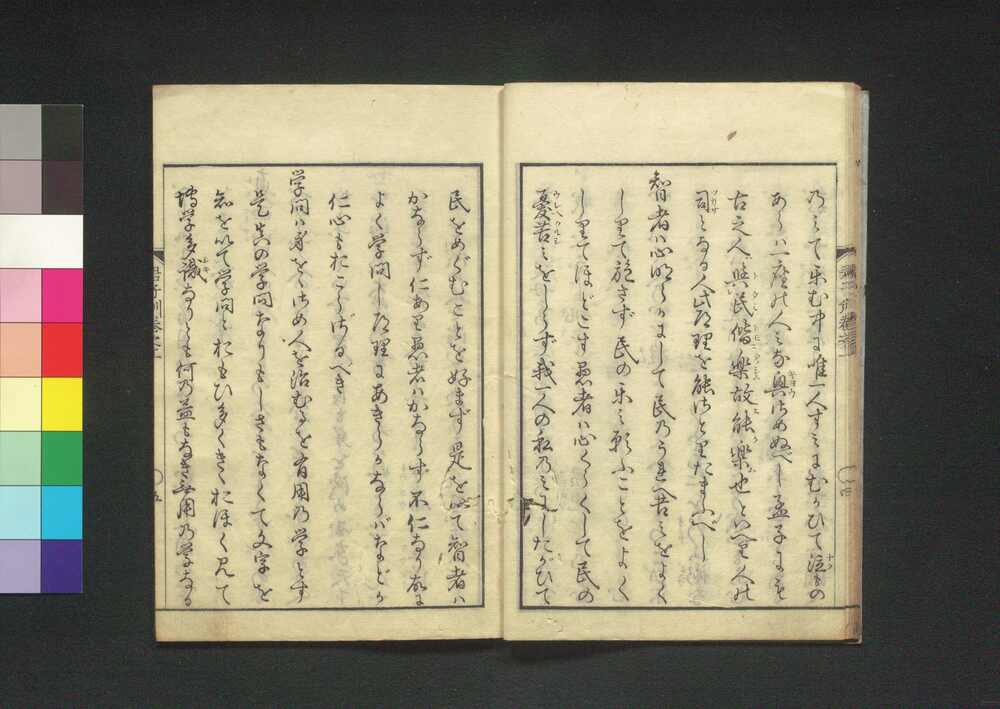 乃ミて楽む中に唯一人すミにむかひて泣もの
あらバ一座の人ミな興さめぬべし孟子にも
古之人與民偕樂故能樂也といへり人の
司となる人此理を能さとりたまふべし
智者ハ心明らかにして民乃うれへ苦ミをよく
しりて施さず民の楽ミ願ふことをよく
しりてほどこす愚者ハ心くらくして民の
憂苦ミをしらず我一人の私乃ミにしたがひて
民をめぐむことを好まず是を以て智者ハ
かならず仁あり愚者ハかならず不仁なり故に
よく学問し道理にあきらかならバなどか
仁心もおこらざるべき
学問ハ身をおさめ人を治むるを有用乃学とす
是真の学問なりもしさもなくて文字を
知を以て学問とおもひ多くきゝおほく見て
博学多識なりとも何乃益もなき無用乃学なる
君子訓巻之上
四
五